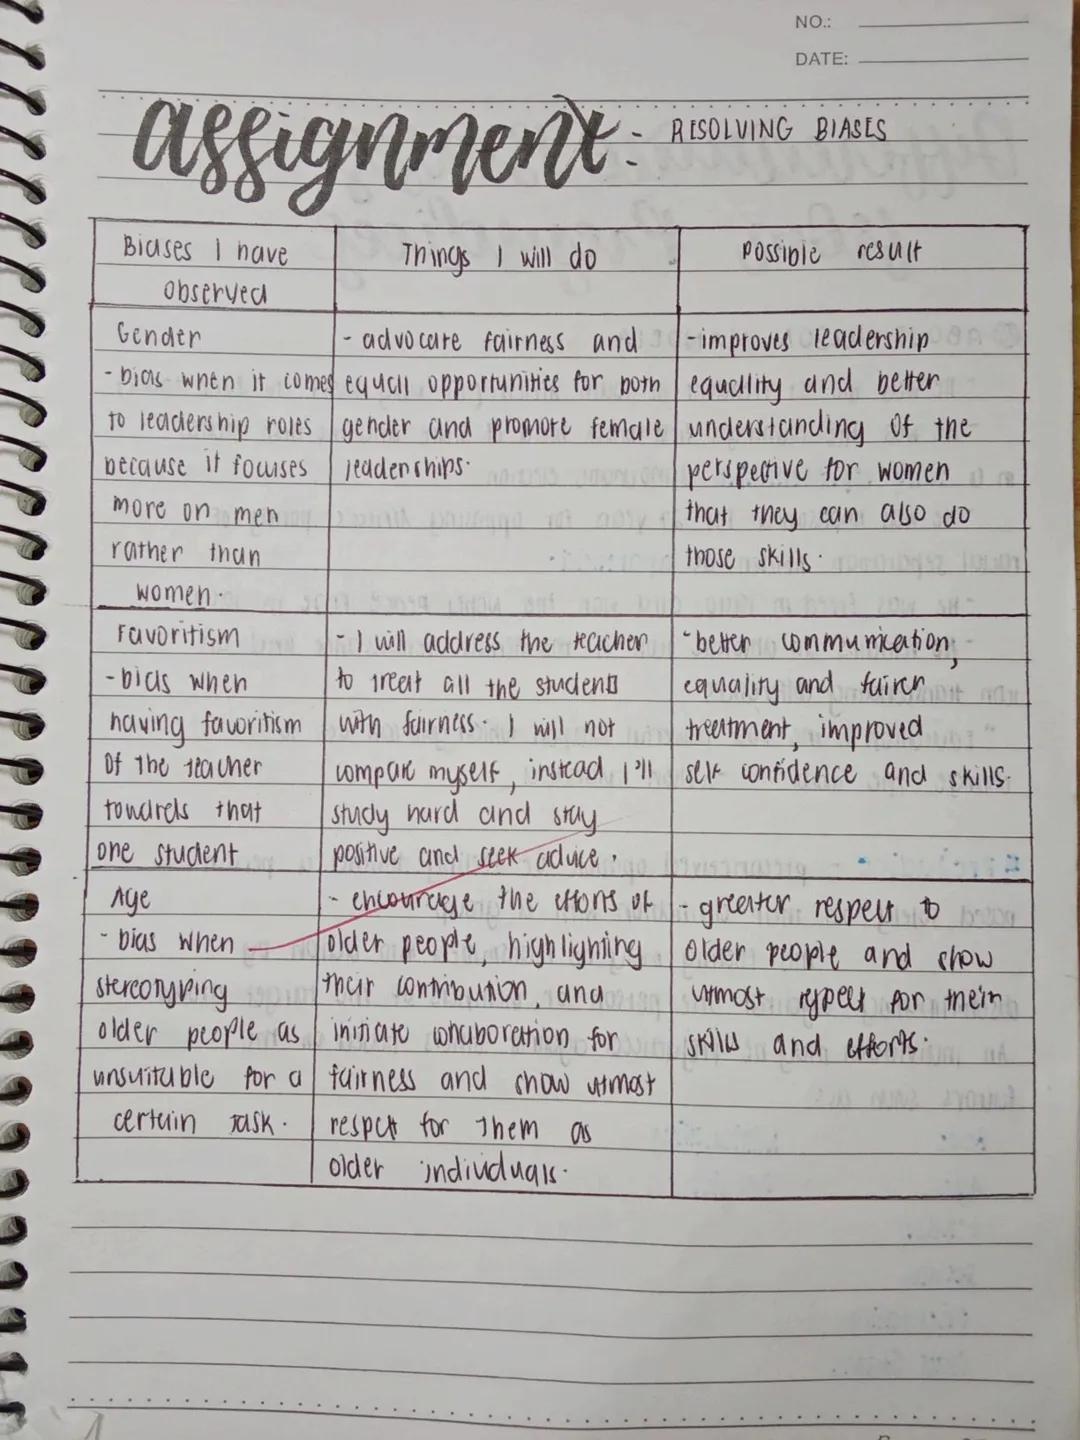 NO.:
DATE:
assignment - RESOLVING BIASES
Biases I have
observed
Things I will do
possible result
Gender
- bias when it comes
to leadership roles
because it focuses
more on men
rather than
women.
- advocate fairness and
equall opportunities for both
gender and promote female
leaderships.
- improves leadership
equallity and better
understanding of the
perspective for women
that they can also do
those skills.
Favoritism
- bias when
having favoritism
of the teacher
towards that
one student
- I will address the teacher
to treat all the students
with fairness. I will not
compare myself, instead I'll
study hard and stay
positive and seek advice.
- better communication,
equality and fairer
treatment, improved
self confidence and skills.
Age
- bias when
stereotyping
older people as
unsuitable for a
certain task.
- encourage the efforts of
older people, highlighting
their contribution, and
initiate collaboration for
fairness and show utmost
respect for them as
older individuals.
- greater respect to
older people and show
utmost respect for their
skills and efforts.